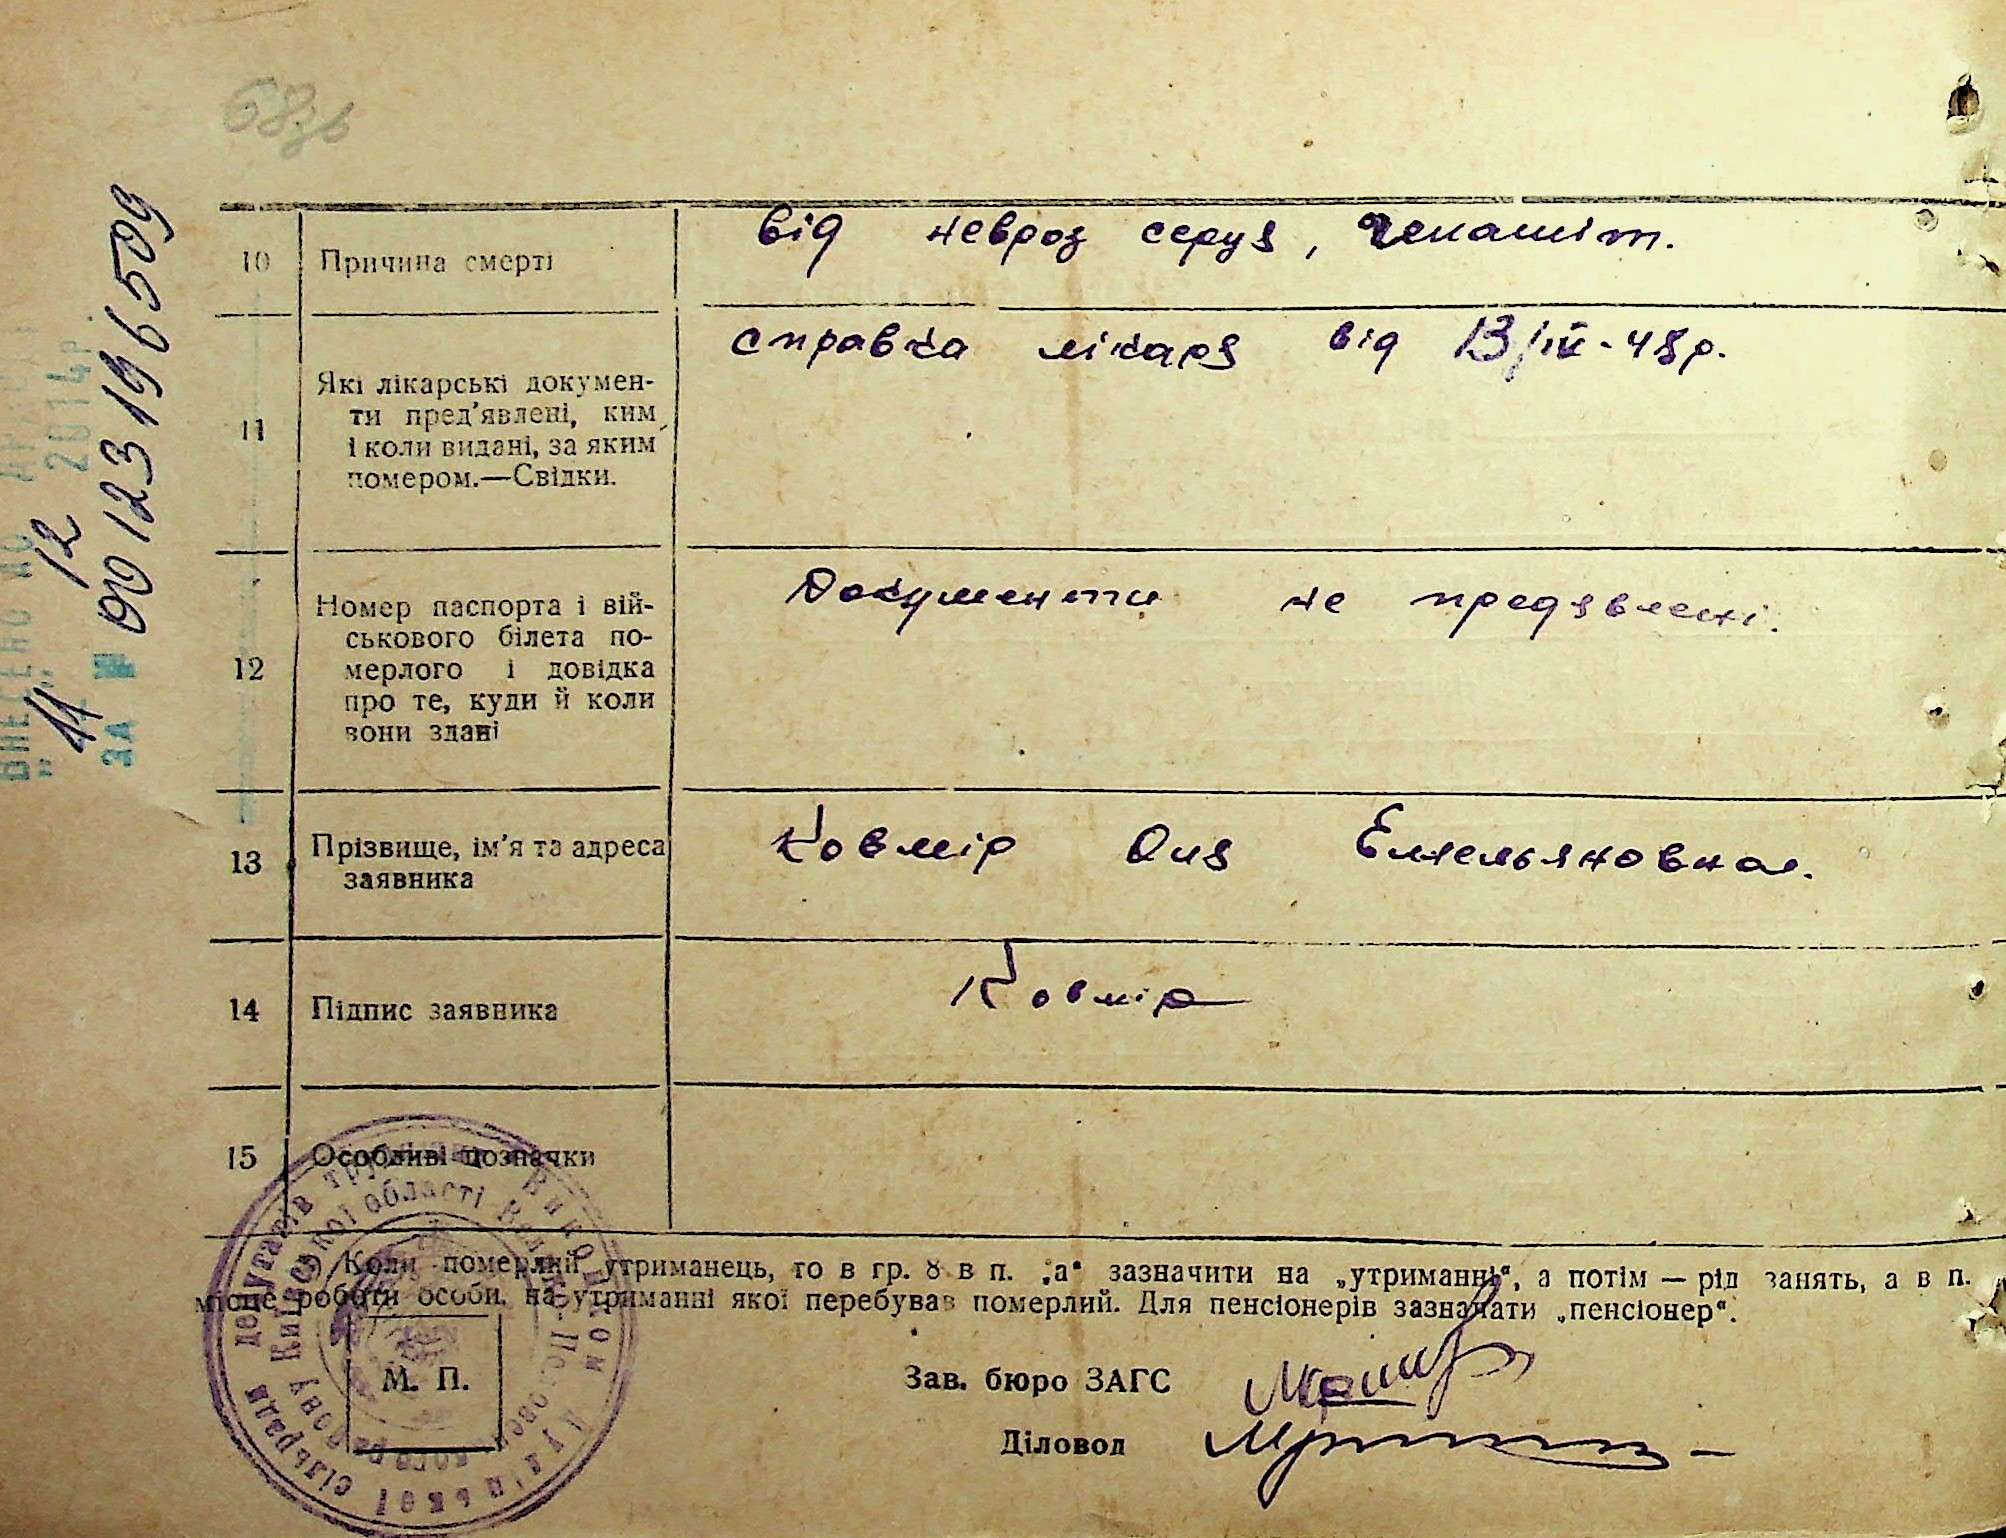 68зв
10 Причина смерті
від невроз серця,
11 Які лікарські докумен-
ти пред'явлені, ким
і коли видані, за яким
номером.—Свідки.
справка лікаря від 13/IV-48р.
12 Номер паспорта і вій-
ськового білета по-
мерлого і довідка
про те, куди й коли
вони здані
Документи не предявлені.
13 Прізвище, ім'я та адреса
заявника
Ковмір Оля Емельяновна.
14 Підпис заявника
Ковмір
15 Особливі позначки
Коли померлий утриманець, то в гр. 8 в п. „а“ зазначити на „утриманні“, а потім — рід занять, а в п.
місце роботи особи, на утриманні якої перебував померлий. Для пенсіонерів зазначати „пенсіонер“.
М. П.
Зав. бюро ЗАГС
Діловод
депутатів трудящих Виконком сільської
Київської області району
ВНЕСЕНО ДО
" 11 " 12 2014р.
ЗА № 00123196509